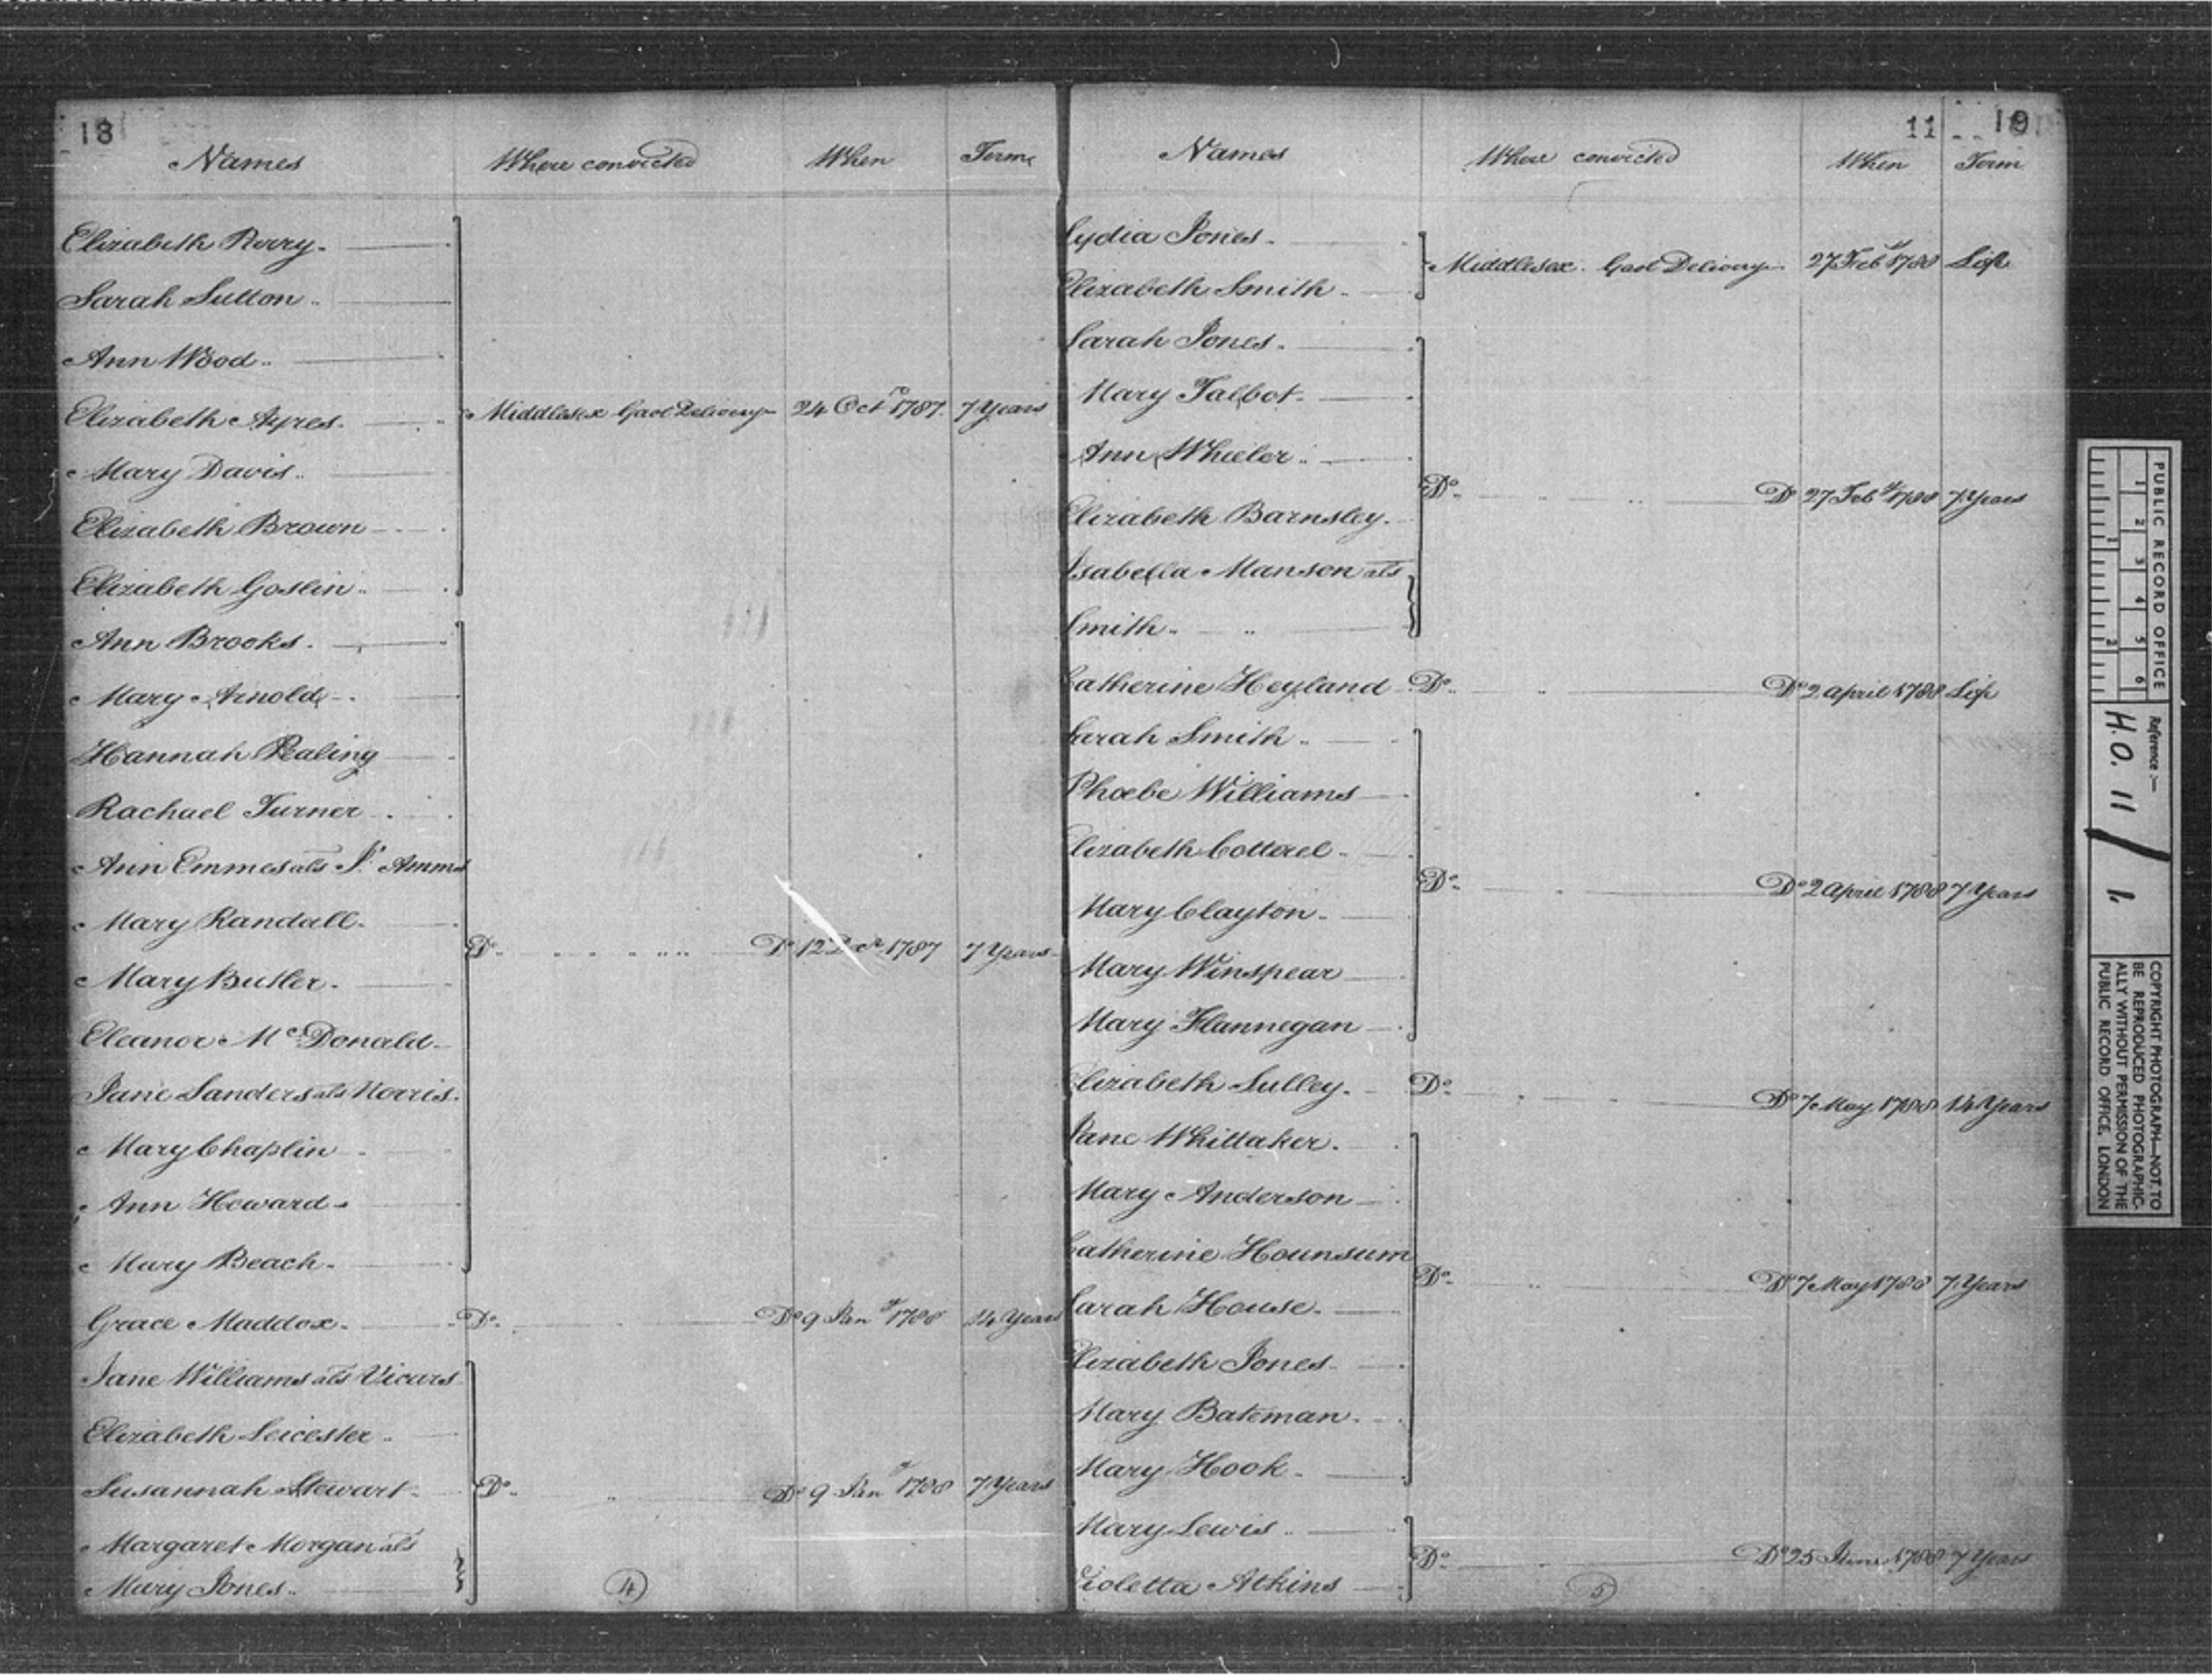 18
Names Where convicted When Term
Elizabeth Perry
Sarah Sutton
Ann Wood
Elizabeth Ayres Middlesex Gaol Delivery 24 Octr 1787 7 Years
Mary Davis
Elizabeth Brown
Elizabeth Goslin
Ann Brooks
Mary Arnold
Hannah Pealing
Rachael Turner
Ann Emmes als St. Amms
Mary Randall
Do Do 12 Decr 1787 7 Years
Mary Butler
Eleanor McDonald
Jane Sanders als Norris
Mary Chaplin
Ann Howard
Mary Beach
Grace Maddox Do Do 9 Jany 1788 14 Years
Jane Williams als Vicars
Elizabeth Leicester
Susannah Stewart Do Do 9 Jany 1788 7 Years
Margaret Morgan als
Mary Jones
4
11 19
Names Where convicted When Term
Lydia Jones
Middlesex Gaol Delivery 27 Feby 1788 Life
Elizabeth Smith
Sarah Jones
Mary Talbot
Ann Wheeler
Do Do 27 Feby 1788 7 Years
Elizabeth Barnsley
Isabella Manson als
Smith
Catherine Heyland Do Do 2 April 1788 Life
Sarah Smith
Phoebe Williams
Elizabeth Cotterel
Do Do 2 April 1788 7 Years
Mary Clayton
Mary Winspear
Mary Flannegan
Elizabeth Sulley Do Do 7 May 1788 14 Years
Jane Whittaker
Mary Anderson
Catherine Hounsum
Do Do 7 May 1788 7 Years
Sarah House
Elizabeth Jones
Mary Bateman
Mary Hook
Mary Lewis
Do Do 25 June 1788 7 Years
Violetta Atkins
5
PUBLIC RECORD OFFICE
1 2 3 4 5 6
1 2
Reference:—
H.O. 11 / 1.
COPYRIGHT PHOTOGRAPH—NOT TO
BE REPRODUCED PHOTOGRAPHIC-
ALLY WITHOUT PERMISSION OF THE
PUBLIC RECORD OFFICE, LONDON